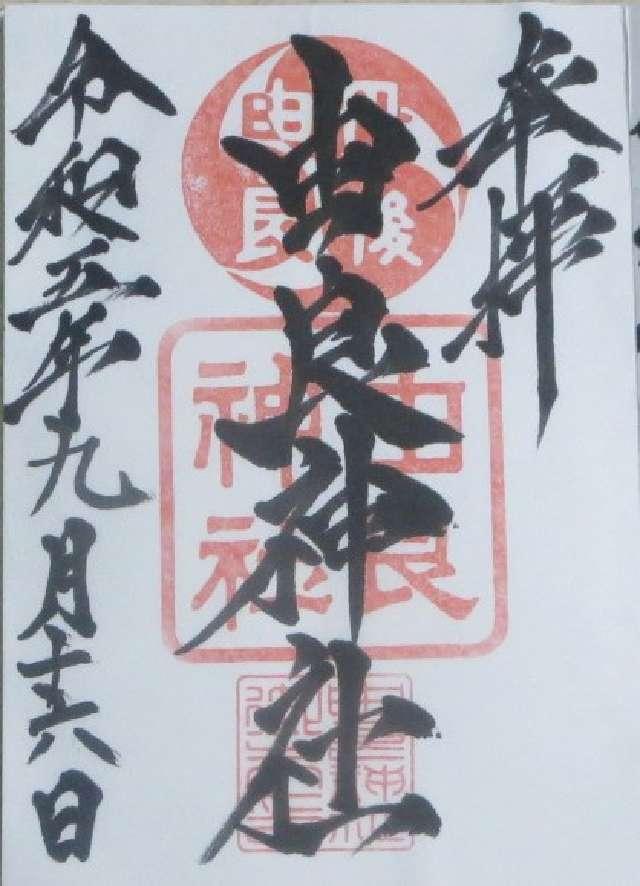 奉拝
丹後
由良
由良
神社
由良神社
令和五年九月十六日